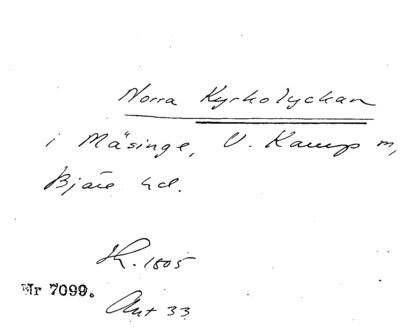 Norra Kyrkolyckan
i Mäsinge, V. Karup sn,
Bjäre hd.
Sk. 1805
Nr 7099.
Akt 33